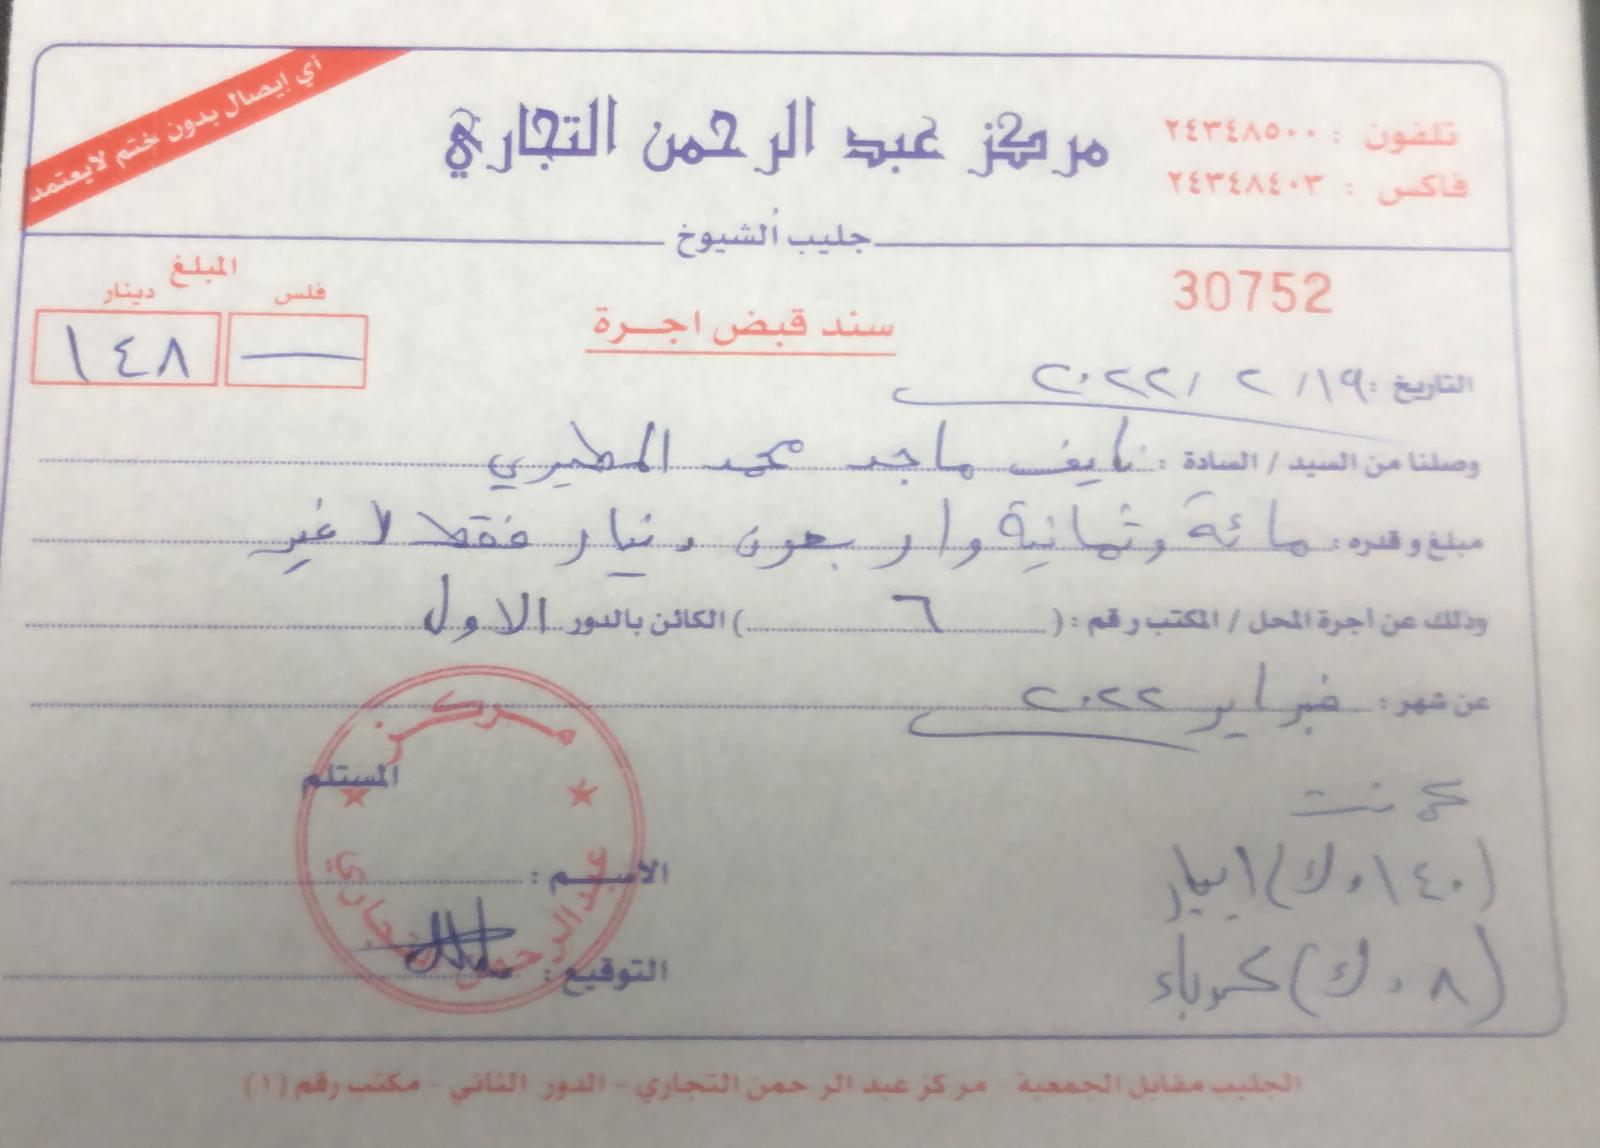 أي إيصال بدون ختم لايعتمد
مركز عبد الرحمن التجاري
تلفون : ٢٤٣٤٨٥٠٠
فاكس : ٢٤٣٤٨٤٠٣
جليب الشيوخ
30752
سند قبض اجرة
المبلغ
فلس دينار
— ١٤٨
التاريخ : ١٩/ ٢ /٢٠٢٢
وصلنا من السيد / السادة : نايف ماجد محمد المطيري
مبلغ وقدره : مائة وثمانية واربعون دينار فقط لا غير
وذلك عن اجرة المحل / المكتب رقم : ( ٦ ) الكائن بالدور الاول
عن شهر : فبراير ٢٠٢٢
المستلم
نت
(١٤٠ د.ك) ايجار
(٨ د.ك) كهرباء
الاسم :
التوقيع :
مركز
عبد الرحمن التجاري
الجليب مقابل الجمعية - مركز عبد الرحمن التجاري - الدور الثاني - مكتب رقم (١)